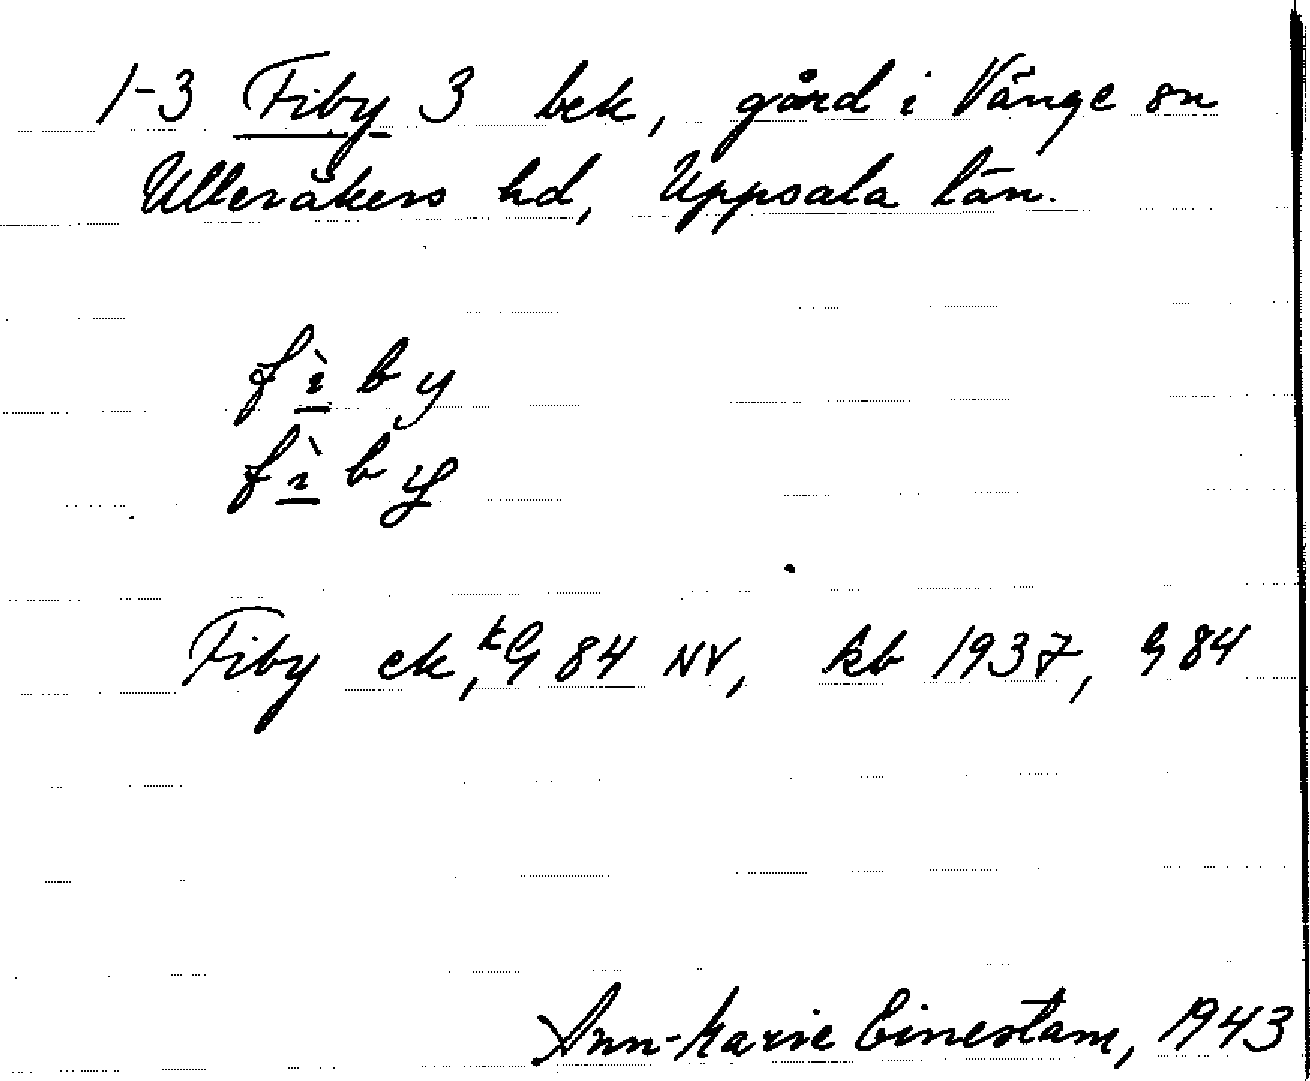 1-3 Fiby 3 bek, gård i Vänge sn
Ulleråkers hd, Uppsala län.
fì̱by
fì̱by
Fiby ek, kG 84 NV, kb 1937, G 84
Ann-Marie Einestam, 1943